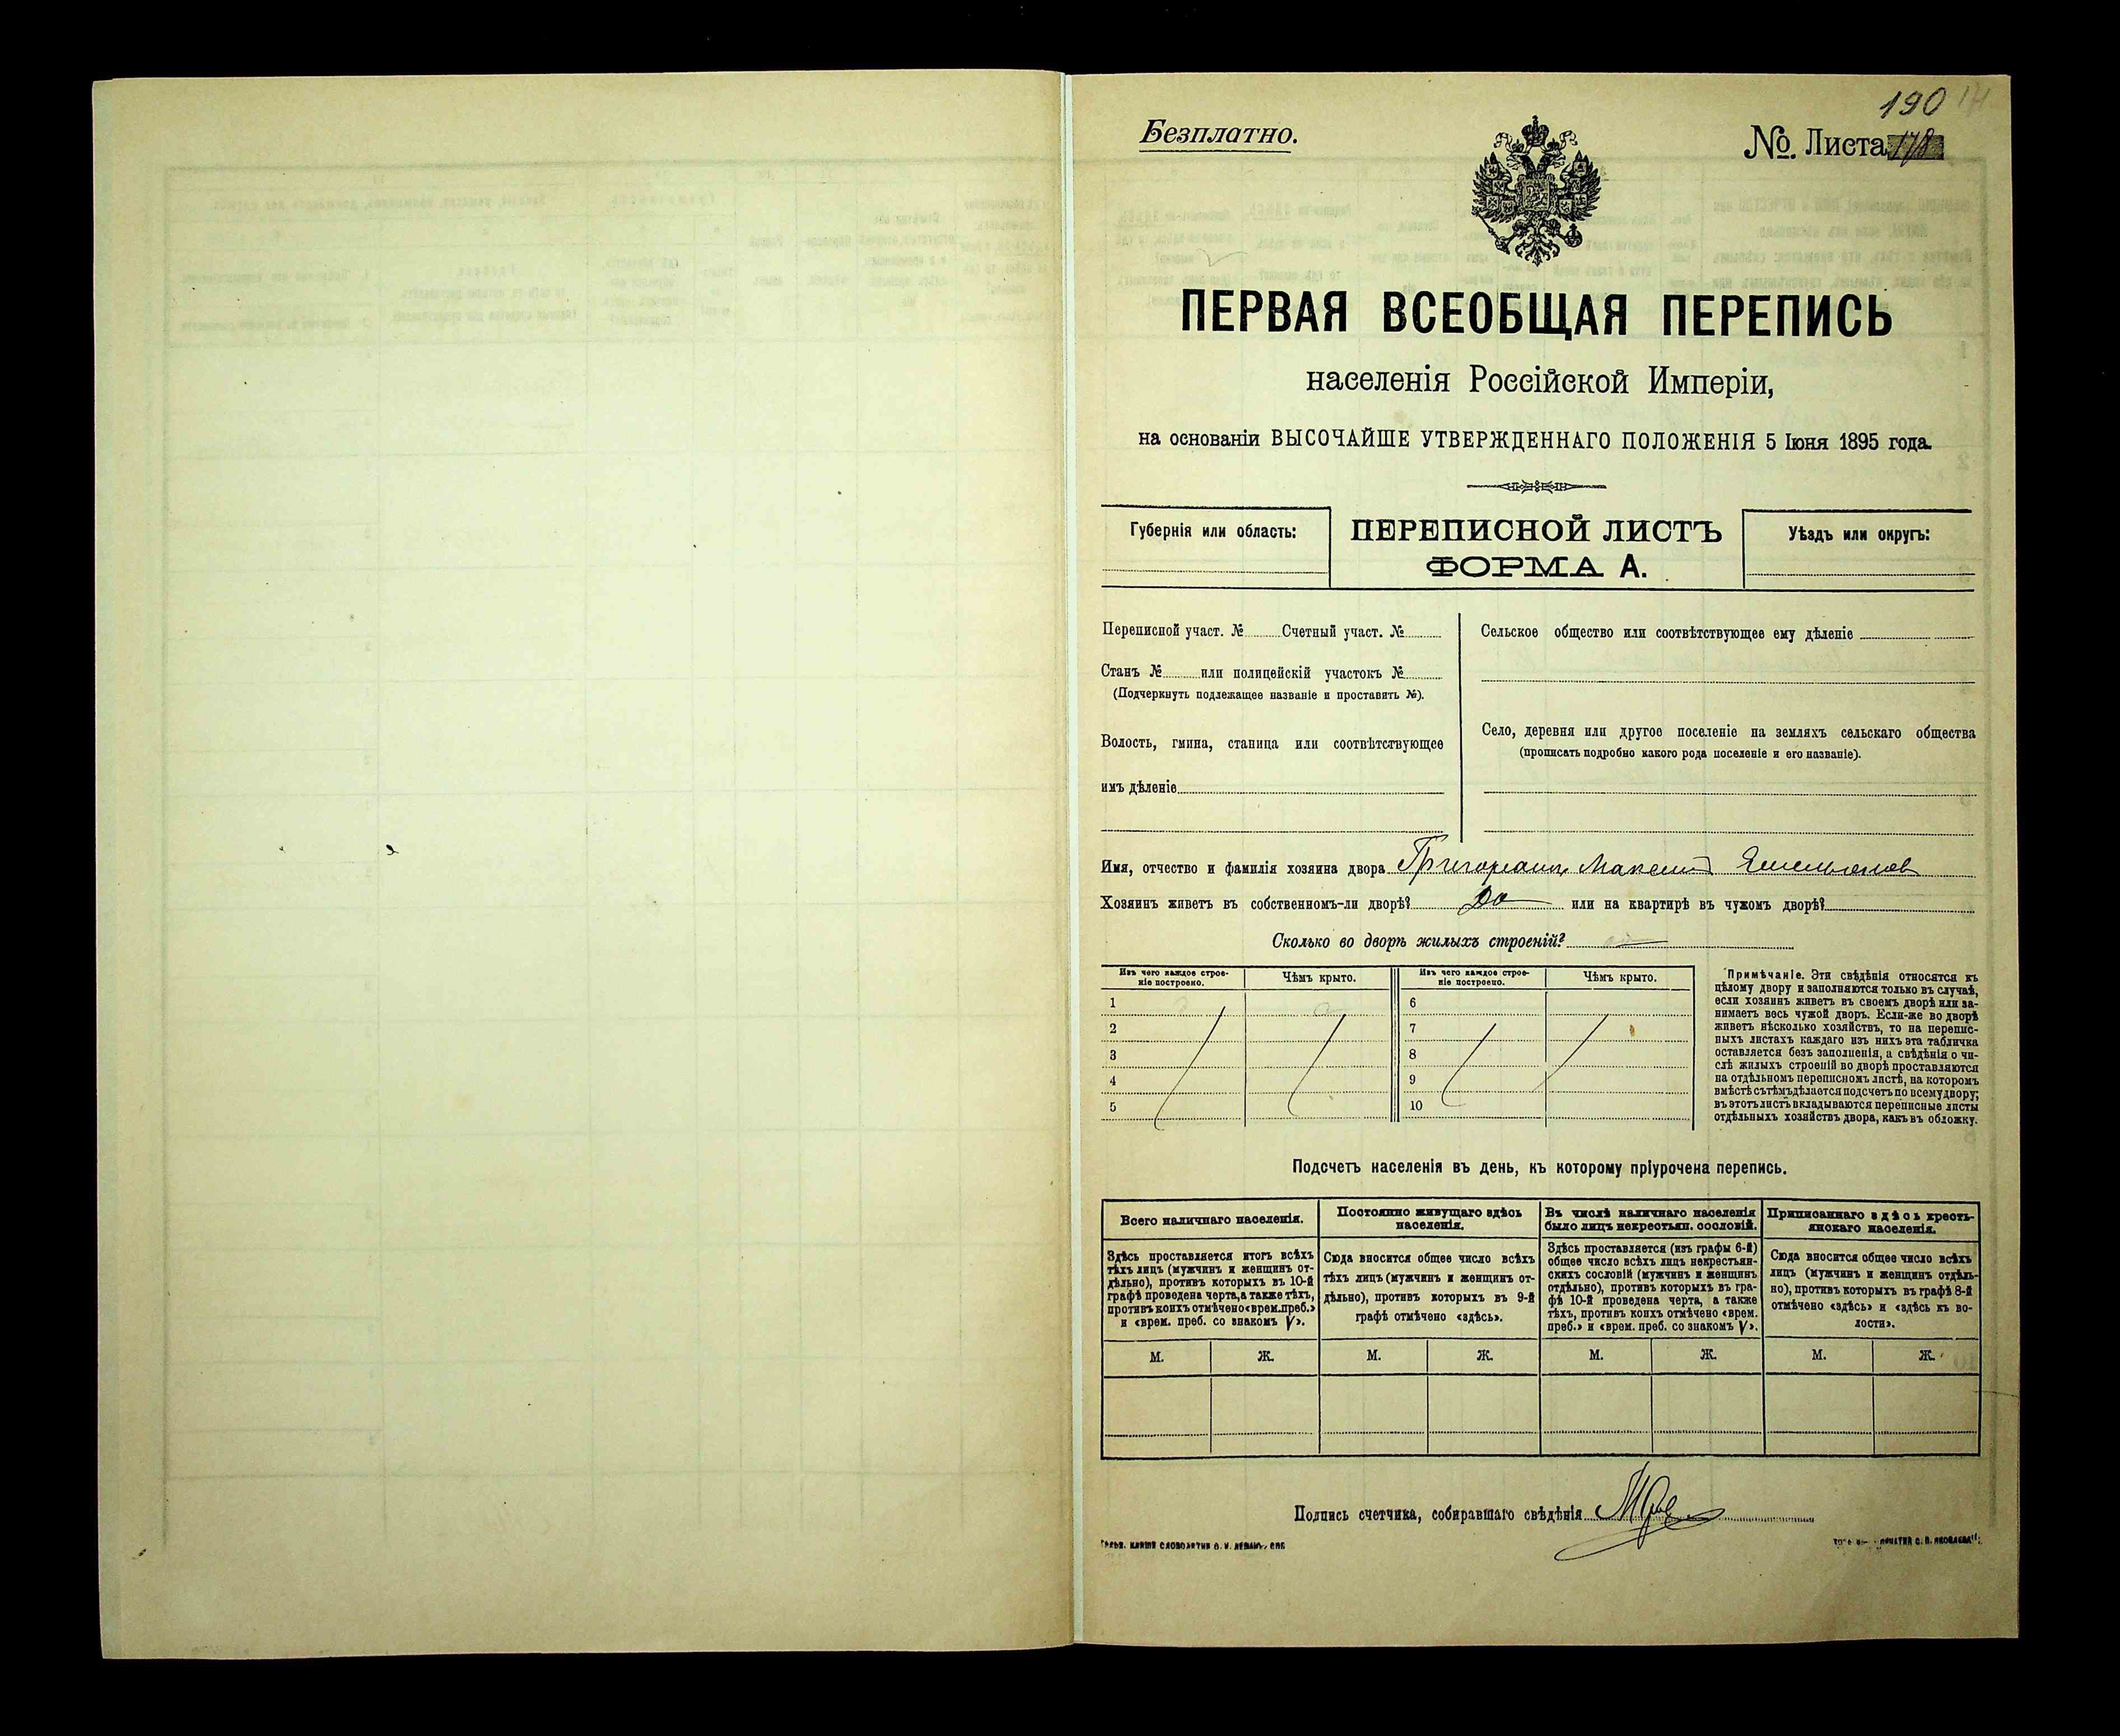 190
Безплатно.
№. Листа 178
ПЕРВАЯ ВСЕОБЩАЯ ПЕРЕПИСЬ
населенія Россійской Имперіи,
на основаніи ВЫСОЧАЙШЕ УТВЕРЖДЕННАГО ПОЛОЖЕНІЯ 5 Іюня 1895 года.
Губернія или область:
ПЕРЕПИСНОЙ ЛИСТЪ
ФОРМА А.
Уѣздъ или округъ:
Переписной участ. № Счетный участ. №
Станъ № или полицейскій участокъ №
(Подчеркнуть подлежащее названіе и проставить №).
Волость, гмина, станица или соотвѣтствующее
имъ дѣленіе
Сельское общество или соотвѣтствующее ему дѣленіе
Село, деревня или другое поселеніе на земляхъ сельскаго общества
(прописать подробно какого рода поселеніе и его названіе).
Имя, отчество и фамилія хозяина двора Григорианц Максим Емельянов
Хозяинъ живетъ въ собственномъ-ли дворѣ? Да или на квартирѣ въ чужомъ дворѣ?
Сколько во дворѣ жилыхъ строеній?
Изъ чего каждое строе-
ніе построено.
Чѣмъ крыто.
1
2
3
4
5
Изъ чего каждое строе-
ніе построено.
Чѣмъ крыто.
6
7
8
9
10
Примѣчаніе. Эти свѣдѣнія относятся къ
цѣлому двору и заполняются только въ случаѣ,
если хозяинъ живетъ въ своемъ дворѣ или за-
нимаетъ весь чужой дворъ. Если-же во дворѣ
живетъ нѣсколько хозяйствъ, то на перепис-
ныхъ листахъ каждаго изъ нихъ эта табличка
оставляется безъ заполненія, а свѣдѣнія о чи-
слѣ жилыхъ строеній во дворѣ проставляются
на отдѣльномъ переписномъ листѣ, на которомъ
вмѣстѣ съ тѣмъ дѣлается подсчетъ по всему двору;
въ этотъ листъ вкладываются переписные листы
отдѣльныхъ хозяйствъ двора, какъ въ обложку.
Подсчетъ населенія въ день, къ которому пріурочена перепись.
Всего наличнаго населенія.
Здѣсь проставляется итогъ всѣхъ
тѣхъ лицъ (мужчинъ и женщинъ от-
дѣльно), противъ которыхъ въ 10-й
графѣ проведена черта, а также тѣхъ,
противъ коихъ отмѣчено «врем. преб.»
и «врем. преб. со знакомъ V».
М. Ж.
Постоянно живущаго здѣсь
населенія.
Сюда вносится общее число всѣхъ
тѣхъ лицъ (мужчинъ и женщинъ от-
дѣльно), противъ которыхъ въ 9-й
графѣ отмѣчено «здѣсь».
М. Ж.
Въ числѣ наличнаго населенія
было лицъ некрестьян. сословій.
Здѣсь проставляется (изъ графы 6-й)
общее число всѣхъ лицъ некрестьян-
скихъ сословій (мужчинъ и женщинъ
отдѣльно), противъ которыхъ въ гра-
фѣ 10-й проведена черта, а также
тѣхъ, противъ коихъ отмѣчено «врем.
преб.» и «врем. преб. со знакомъ V».
М. Ж.
Приписаннаго здѣсь кресть-
янскаго населенія.
Сюда вносится общее число всѣхъ
лицъ (мужчинъ и женщинъ отдѣль-
но), противъ которыхъ въ графѣ 8-й
отмѣчено «здѣсь» и «здѣсь къ во-
лости».
М. Ж.
Подпись счетчика, собиравшаго свѣдѣнія